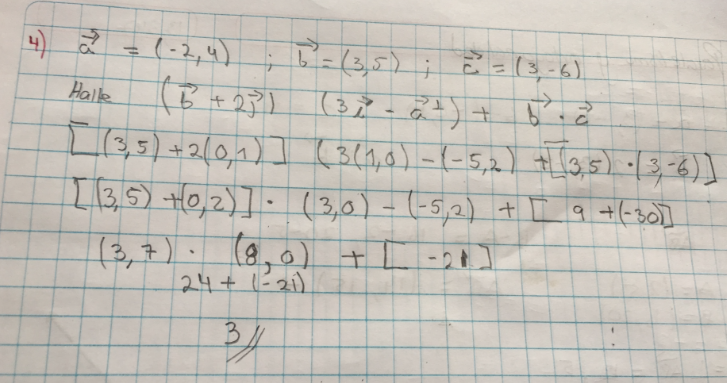 4) a⃗ = (-2,4) ; b⃗ = (3,5) ; c⃗ = (3,-6)
Halle (b⃗ + 2j⃗) (3i⃗ - a⃗⊥) + b⃗ · c⃗
[(3,5) + 2(0,1)] (3(1,0) - (-5,2) + [(3,5) · (3,-6)]
[(3,5) + (0,2)] · (3,0) - (-5,2) + [9 + (-30)]
(3,7) · (8,0) + [-21]
24 + (-21)
3//